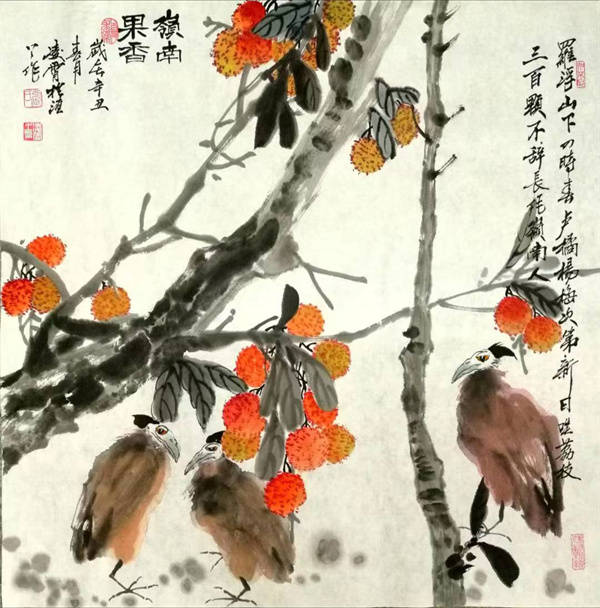 羅浮山下四時春卢橘楊梅次第新日啖荔枝
三百顆不辭長作嶺南人
嶺南
果香
歲在辛丑
春月
作